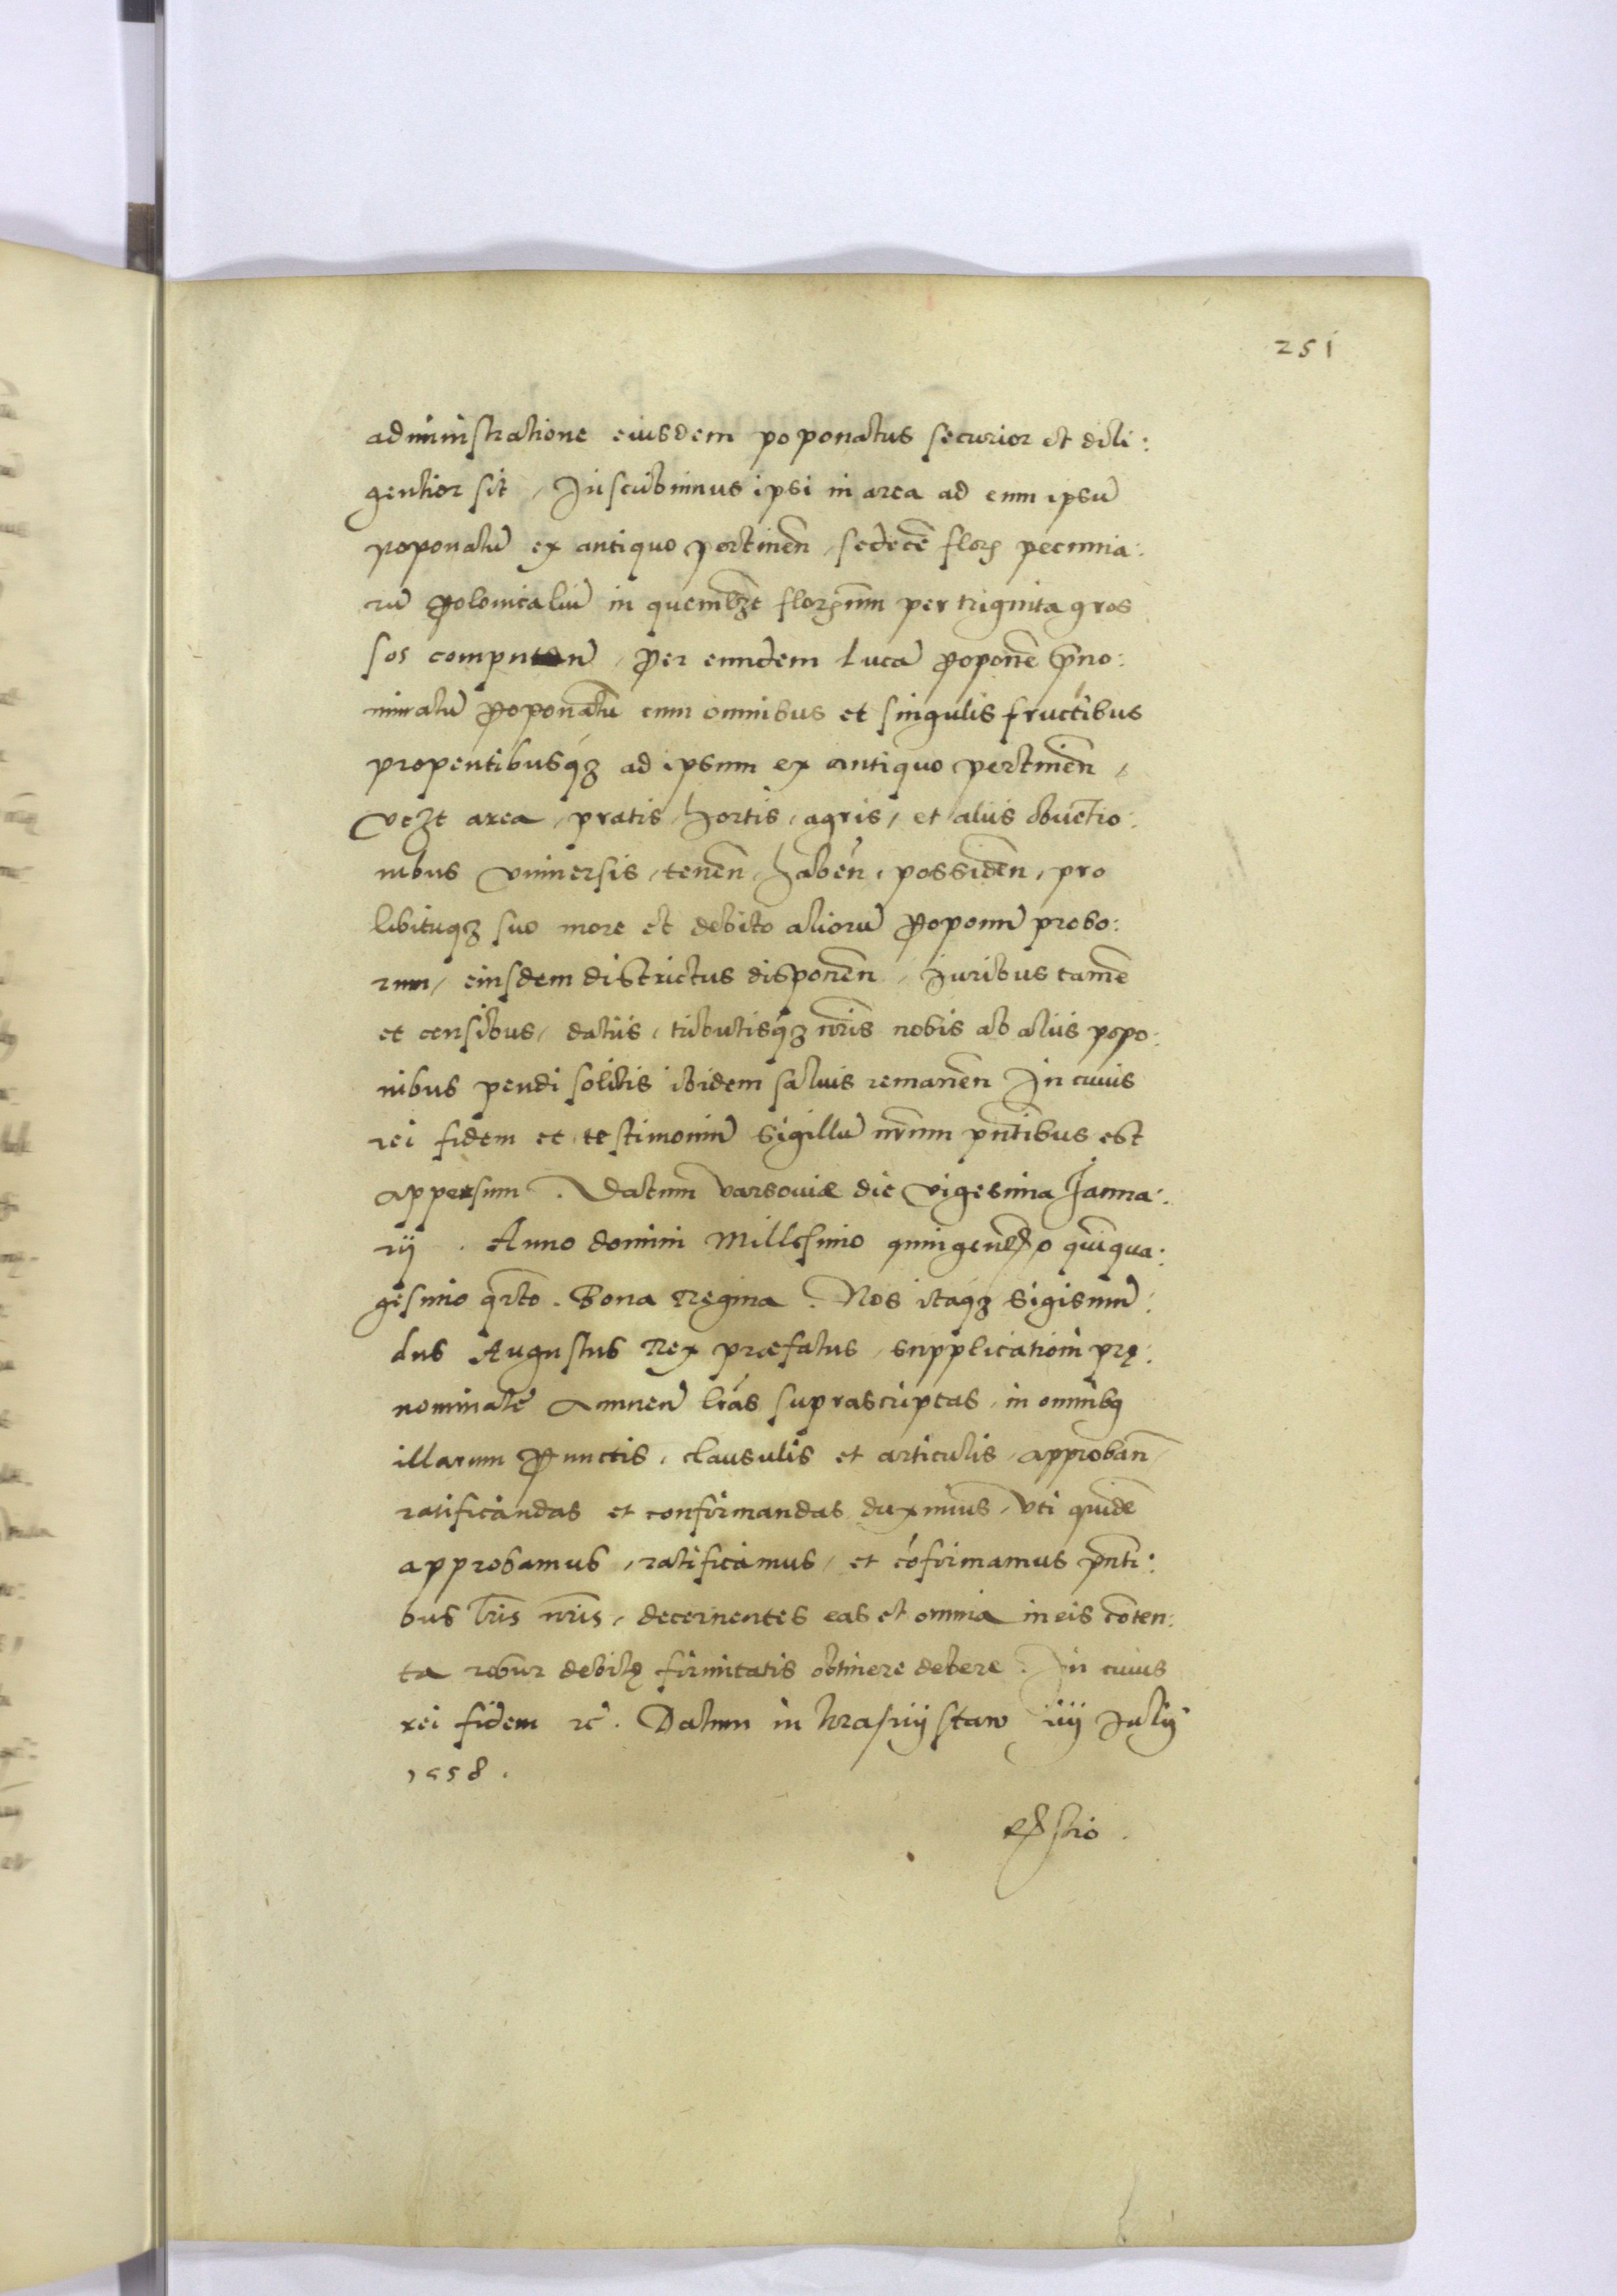 251
administratione eiusdem poponatus securior et dili:
gentior sit, Inscribimus ipsi in area ad eum ipsū
poponatū ex antiquo pertineñ, sedecē flor̄ pecunia:
rū Polonicaliū in quemlꝫt florenum per triginta gros
sos computañ, Per eundem Lucā Poponē p̄no:
minatū Poponatū cum omnibus et singulis fructibus
proventibusqꝫ ad ipsum ex antiquo pertineñ,
vcꝫt area, pratis, hortis, agris, et aliis obventio:
nibus vniuersis, teneñ, habeñ, possideñ, pro
libituqꝫ suo more et debito aliorū Poponū probo:
rum, eiusdem districtus disponeñ, Juribus tamē
et censibus, datiis, tributisqꝫ nr̄is nobis ab aliis popo:
nibus pendi solitis ibidem salvis remaneñ In cuius
rei fidem et testimoniū sigillū nr̄um pn̄tibus est
appensum. Datum Varsoviæ die vigesima Janua:
rij. Anno domini Millesimo quingentesimo quinqua:
gesimo qrto. Bona Regina. Nos itaqꝫ Sigismū:
dus Augustus Rex præfatus, supplicationi prę:
nominatę annueñ lr̄as suprascriptas, in omnibꝫ
illarum Punctis, clausulis et articulis, approbañ
ratificandas et confirmandas duximus, vti quidē
approbamus, ratificamus, et cōfirmamus pn̄ti:
bus lr̄is nr̄is, decernentes eas et omnia in eis cōten:
ta robur debitę firmitatis obtinere debere. In cuius
rei fidem ꝛc̄. Datum in Krasnystaw iiij Julij
1558.